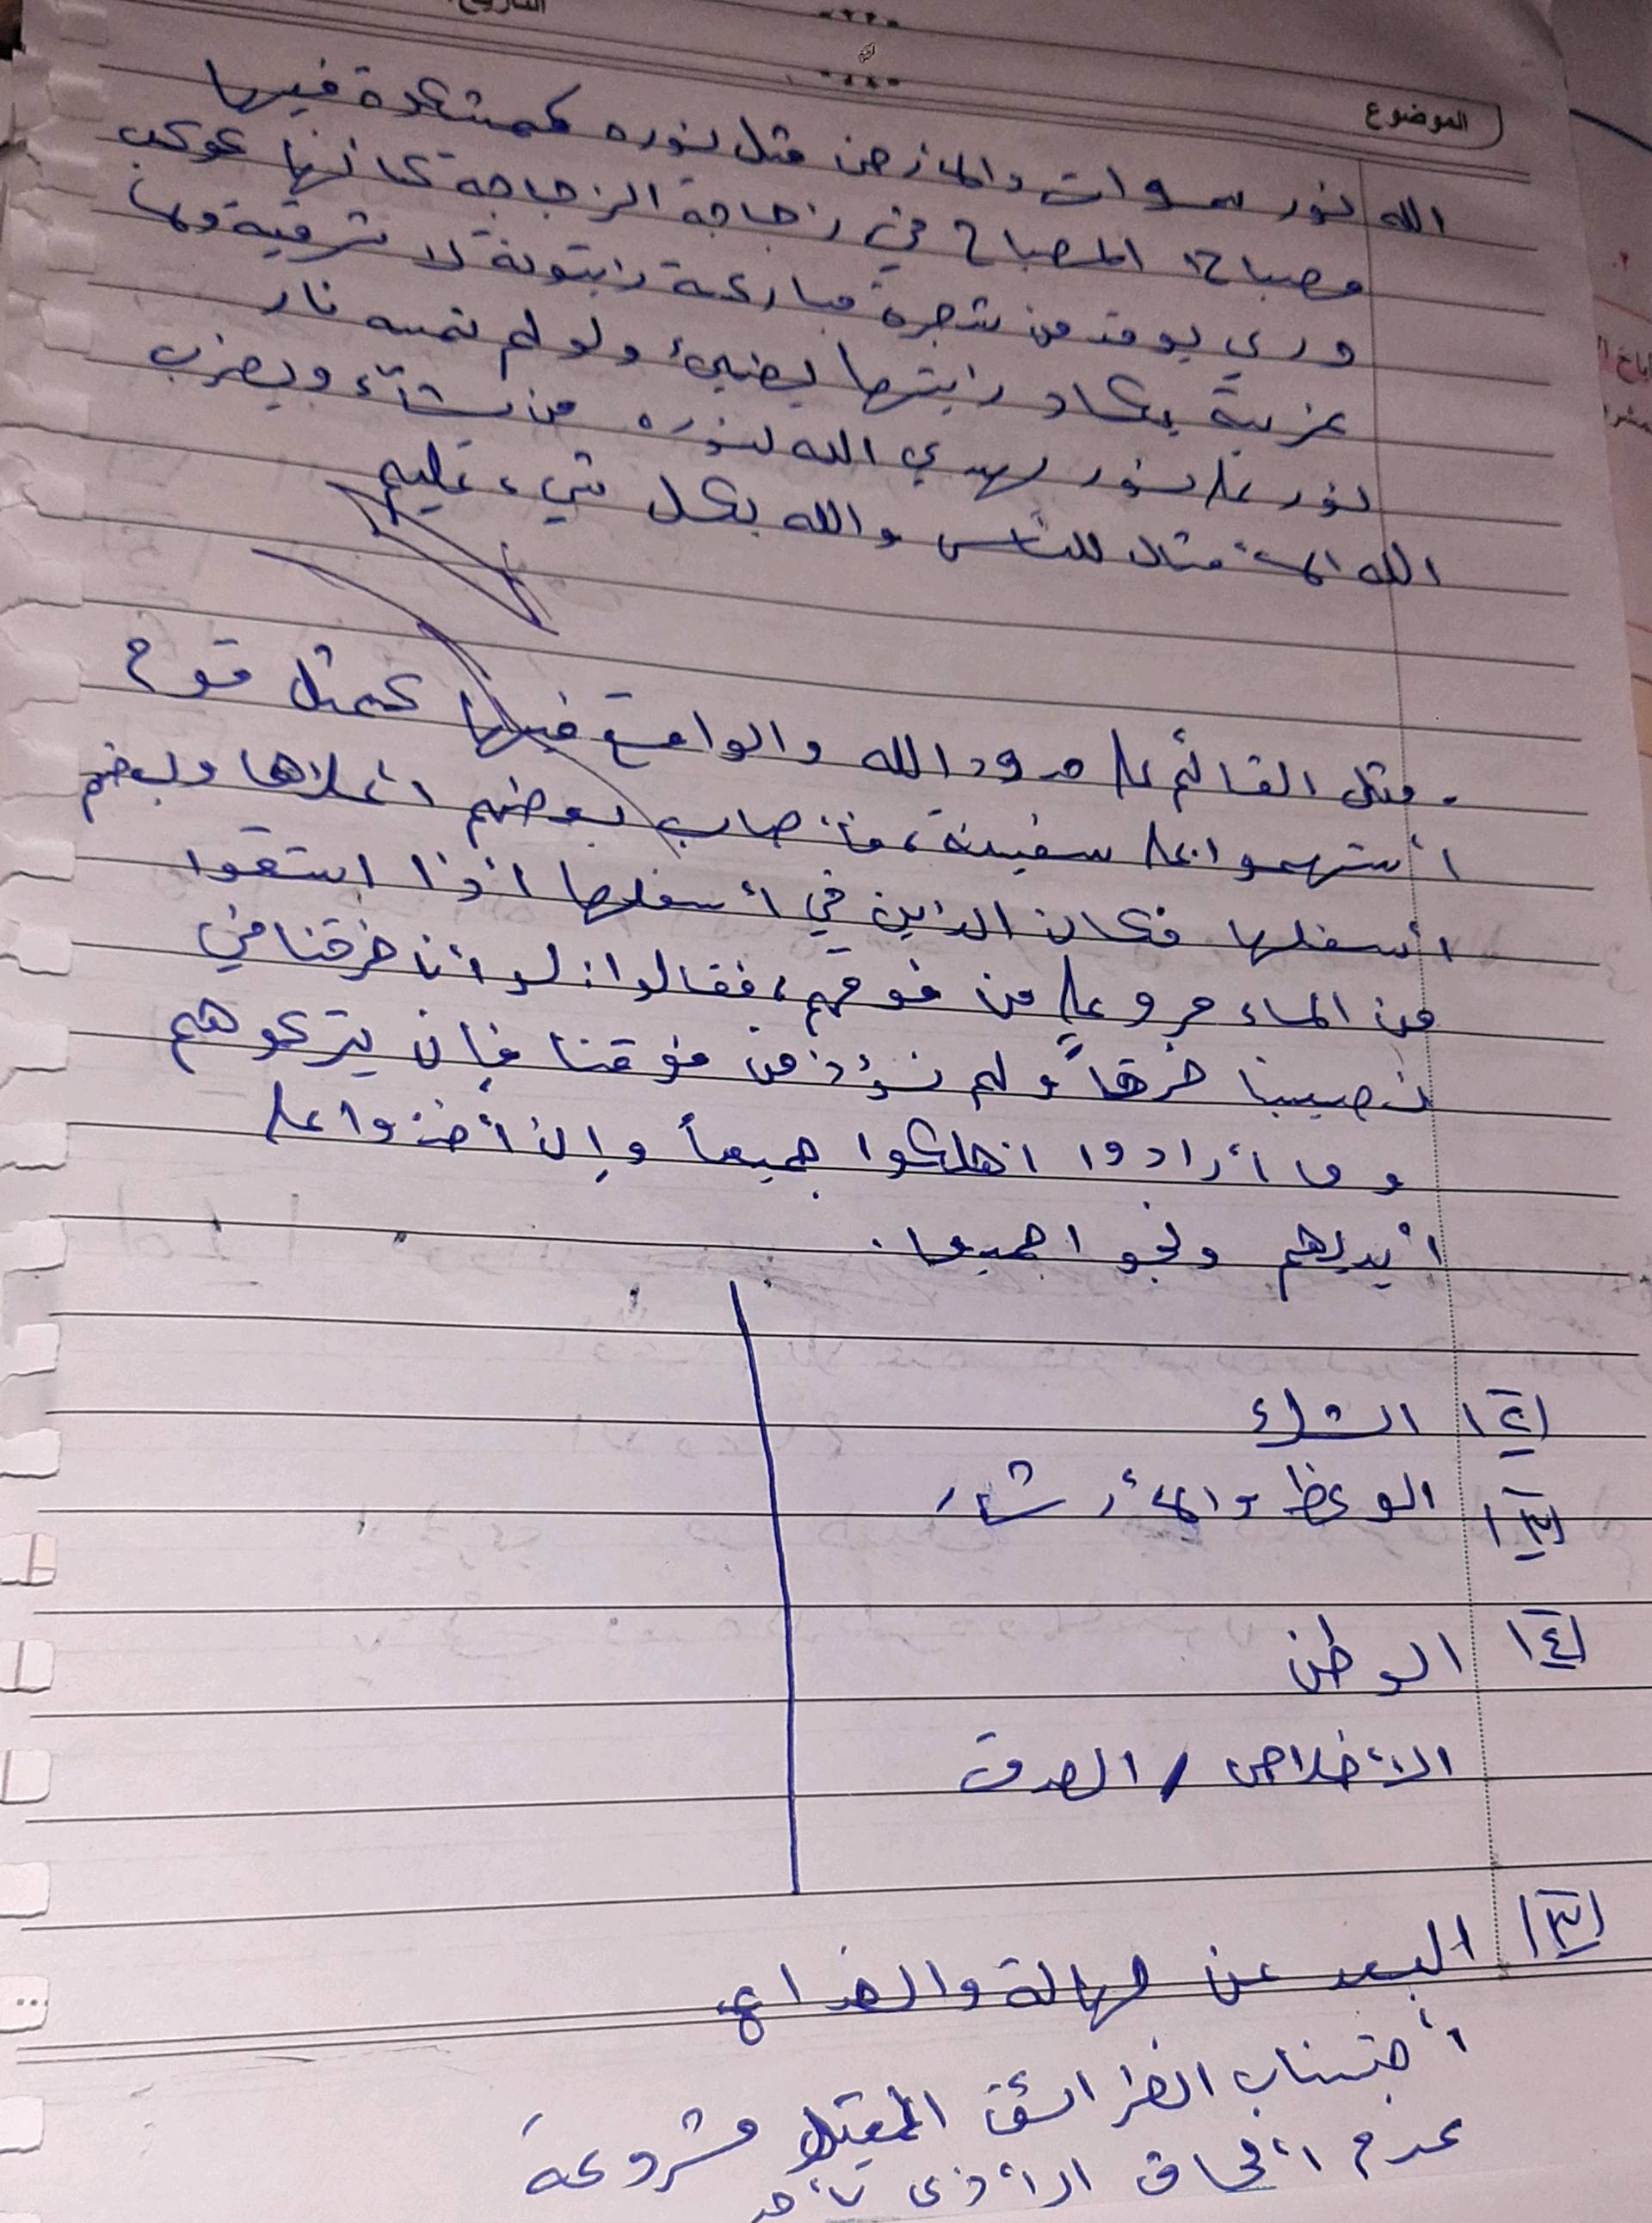 الموضوع
الله نور سموات والارض مثل نوره كمشكدة فيها
مصباح المصباح في زجاجة الزجاجة كانها كوكب
دري يوقد من شجرة مباركة زيتونة لا شرقية ولا
غربية يكاد زيتها يضيئ ولو لم تمسه نار
نور علا نور يهدي الله لنوره من يشآء ويضرب
الله الأمثال للناس والله بكل شيء عليم
. مثل القائم علا حدود الله والواقع فيها كمثل قوم
أستهموا علا سفينة، فأصاب بعضهم أعلاها وبعضهم
أسفلها فكان الذين في أسفلها اذا استقوا
من الماء مروعلا من فوقهم، فقالوا: لو أنا خرقنا في
نصيبنا خرقاً ولم نؤذ من فوقنا فإن يتركوهم
وما أرادوا اهلكوا جميعاً وإن أخذوا علا
أيديهم ونجوا جميعا.
٢ الشراء
٣ الوعظ والأرشاد
٤ الوطن
الأخلاص / الصدق
٣ البعد عن جهالة والخداع
أجتناب الطرائق المشروعة
عدم ألحاق الأذى